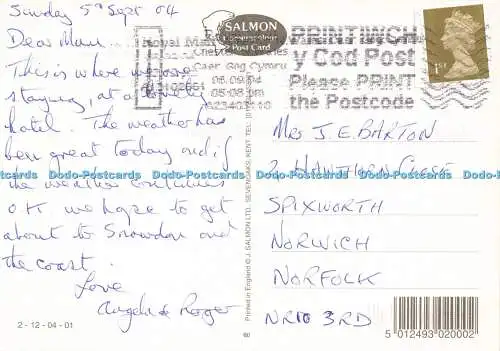 Sunday 5th Sept 04
Dear Mum,
This is where we are
staying, at a lovely
hotel. The weather has
been great today and if
the weather continues
OK we hope to get
about to Snowdon and
the coast.
Love
Angela & Roger
2-12-04-01
SALMON
Cameracolour
Post Card
Royal Mail
Caer Gog Cymru
06.09.04
05:08pm
PRINTIWCH
y Cod Post
Please PRINT
the Postcode
1ST
MRS J.E. BARTON
2 HAWTHORN CLOSE
SPIXWORTH
NORWICH
NORFOLK
NR10 3RD
Printed in England © J. SALMON LTD., SEVENOAKS, KENT, TEL.
60
5 012493 020002
Dodo-Postcards Dodo-Postcards Dodo-Postcards Dodo-Postcards Dodo-Postcards